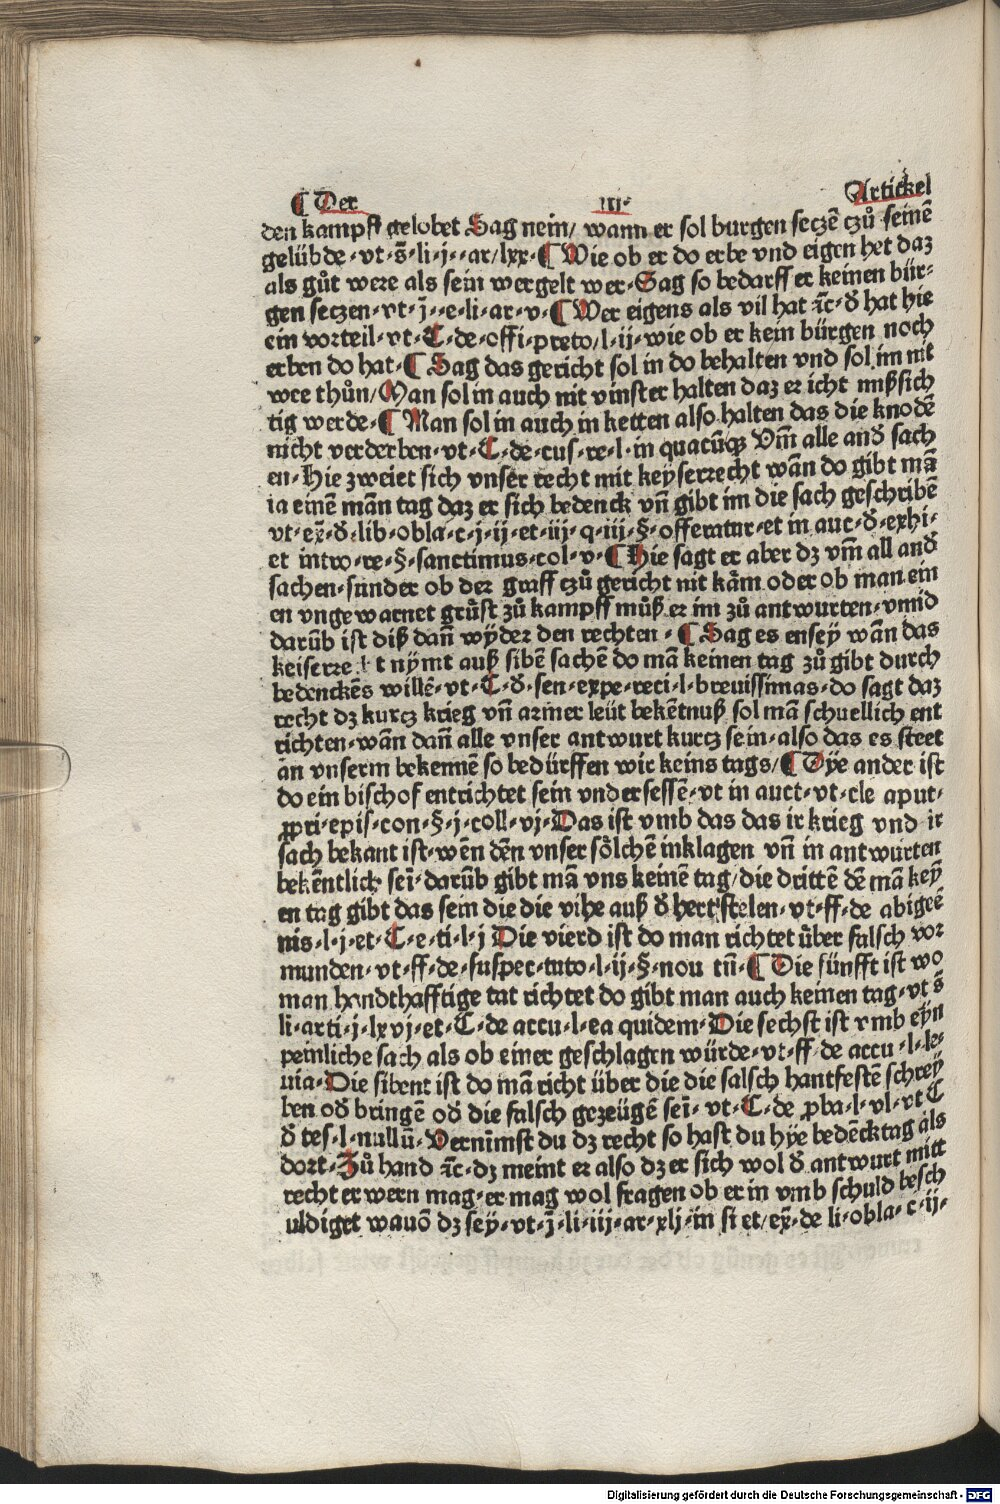 ¶ Der III· Artickel
den kampff gelobet Sag nein/ wann er sol burgen seczē czů seinē
gelübde·vt·s̄·li·j··ar/lxx·¶ Wie ob er do erbe vnd eigen het daz
als gůt were als sein wergelt wer·Sag so bedarff er keinen bür·
gen seczen·vt·j̄··e·li·ar·v·¶ Wer eigens als vil hat ⁊c·ð hat hie
ein vorteil·vt·C·de·offi·preto/l·ij·wie ob er kein bürgen noch
erben do hat·¶ Sag das gericht sol in do behalten vnd sol im nit
wee thůn/Man sol in auch nit vinster halten daz er icht mißsich
tig werde·¶ Man sol in auch in ketten also halten das die knodē
nicht verderben·vt·C·de·cus·re·l·in quacūqꝫ Vm̄ alle anð sach
en·Hie zweiet sich vnser recht mit keyserrecht wān do gibt mā
ia einē mān tag daz er sich bedenck vn̄ gibt im die sach geschribē
vt·ex̄·ð·lib·obla·c·j·ij·et·iij·q·iij·§·offeratur·et in auc·ð·exhi·
et intro·re·§·sanctimus·col·v·¶ Hie sagt er aber dz vm̄ all anð
sachen·sunder ob der graff czů gericht nit kām oder ob man ein
en vngewarnet grůst zů kampff můß er im zů antwurten·vmid
darūb ist diß dan̄ wyder den rechten·¶ Sag es ensey wān das
keiserre t nymt auß sibē sachē do mā keinen tag zů gibt durch
bedenckēs willē·vt·C·ð·sen·expe·reci·l·breuissimas·do sagt daz
recht dz kurcz krieg vn̄ armer leüt bekētnuß sol mā schuellich ent
richten·wān dan̄ alle vnser antwurt kurcz sein·also das es steet
an vnserm bekennē so bedürffen wir keins tags/¶ Dÿe ander ist
do ein bischof entrichtet sein vndersessē·vt in auct·vt·cle aput·
ꝓpri·epis·con·§·j·coll·vj·Das ist vmb das das ir krieg vnd ir
sach bekant ist·wēn dēn vnser sölchē inklagen vn̄ in antwurten
bekēntlich seī·darūb gibt mā vns keinē tag/die drittē dē mā keÿ
en tag gibt das sein die die vihe auß ð hert stelen·vt·ff·de abigeē
nis·l·j·et·C·e·ti·l·j Die vierd ist do man richtet über falsch vor
munden·vt·ff·de·suspec·tuto·l·ij·§·nou tn̄·¶ Die fünfft ist wo
man handthafftige tat richtet do gibt man auch keinen tag·vt s̄
li·arti·j·lxvj·et·C·de accu·l·ea quidem·Die sechst ist vmb eyn
peinliche sach als ob einer geschlagen würde·vt·ff·de accu·l·le·
uia·Die sibent ist do mā richt über die die falsch hantfestē schrey
ben oð bringē oð die falsch gezeügē seī·vt·C·de ꝓba·l·vl·vt C
ð tes·l·nullū·Vernīmst du dz recht so hast du hÿe bedēcktag als
dort·Zů hand ⁊c·dz meint er also dz er sich wol ð antwurt mitt
recht erwern mag·er mag wol fragen ob er in vmb schuld besch
uldiget wauō dz sey·vt·j̄·li·iij·ar·xlj·in fi et/ex̄·de li·obla·c·ij·
Digitalisierung gefördert durch die Deutsche Forschungsgemeinschaft · DFG